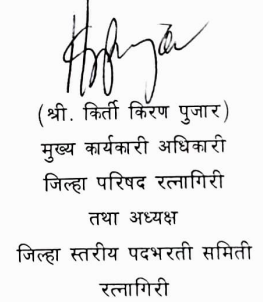 (श्री. किर्ती किरण पुजार)
मुख्य कार्यकारी अधिकारी
जिल्हा परिषद रत्नागिरी
तथा अध्यक्ष
जिल्हा स्तरीय पदभरती समिती
रत्नागिरी